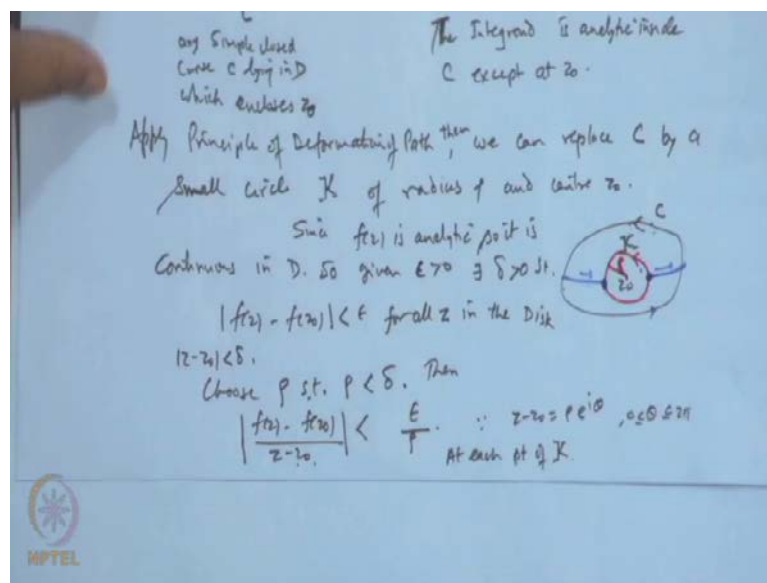 any Simple closed
Curve C lying in D
which encloses z0
The Integrand is analytic inside
C except at z0.
Apply Principle of Deformation of Path then, we can replace C by a
Small circle K of radius ρ and centre z0.
Since f(z) is analytic so it is
Continuous in D. So given ε>0 ∃ δ>0 st.
|f(z) - f(z0)| < ε for all z in the Disk
|z-z0|<δ.
Choose ρ s.t. ρ < δ. Then
| f(z) - f(z0) / z-z0 | < ε/ρ . ∵ z-z0 = ρ e^iθ , 0≤θ≤2π
At each pt of K.
C
K
ρ
z0
NPTEL